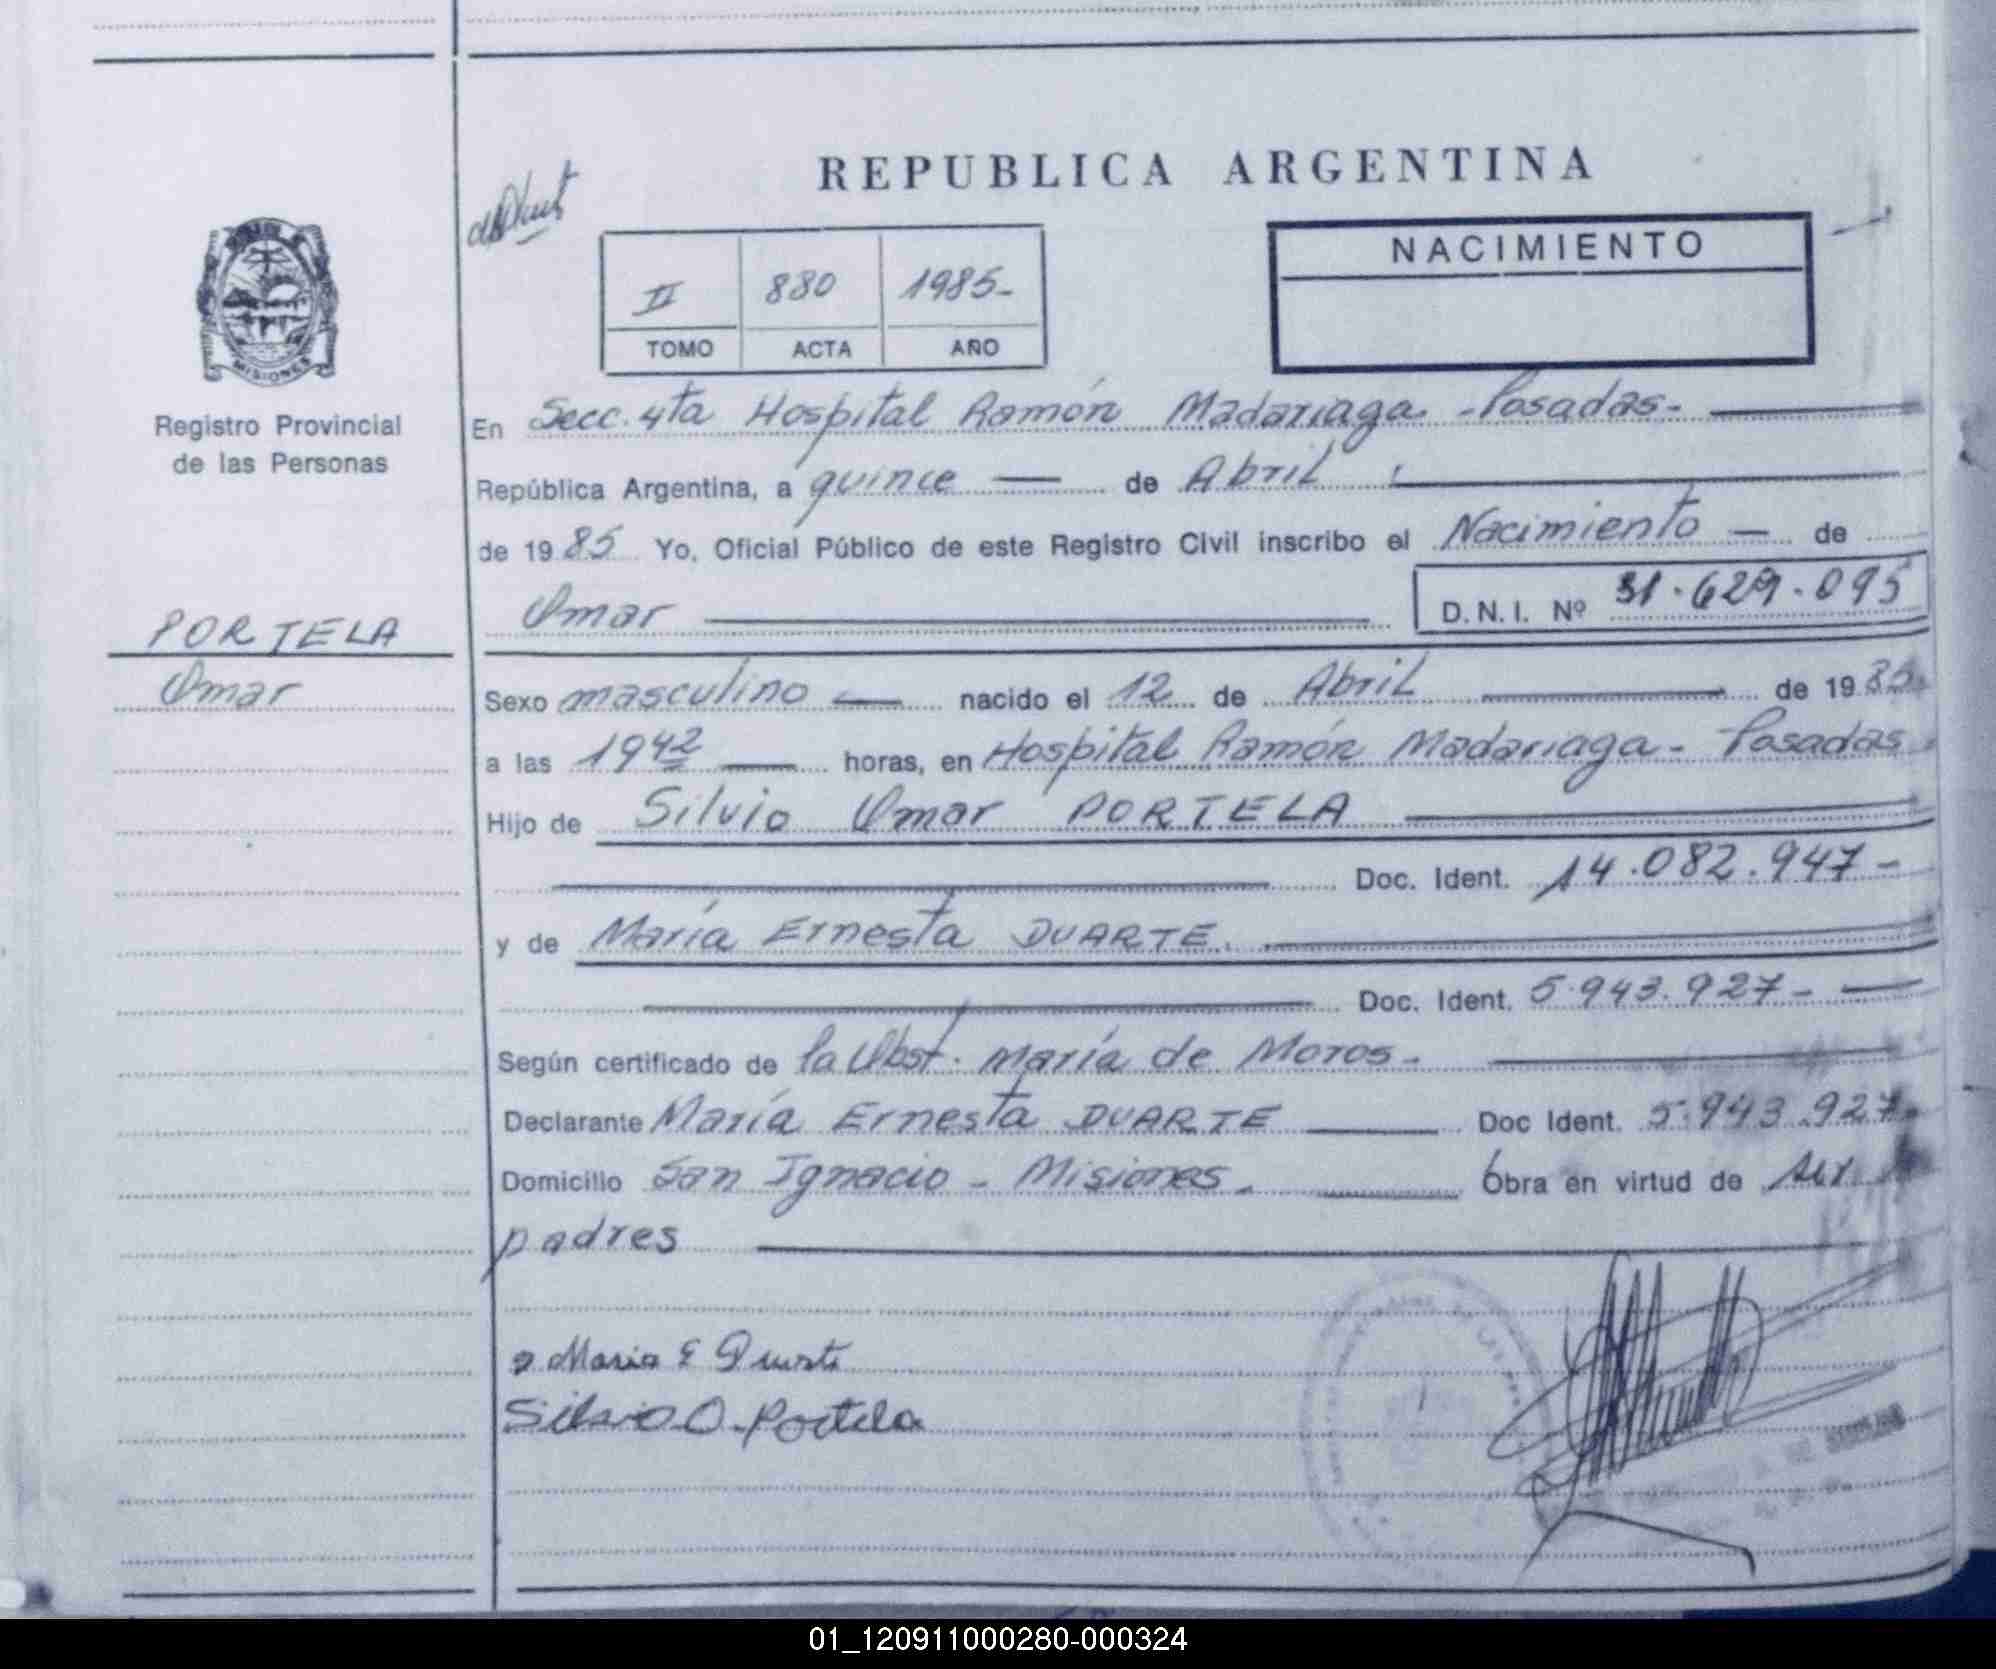 REPUBLICA ARGENTINA
NACIMIENTO
II 880 1985-
TOMO ACTA AÑO
MISIONES
Registro Provincial
de las Personas
PORTELA
Omar
En Secc. 4ta Hospital Ramón Madariaga - Posadas-
República Argentina, a quince de Abril
de 1985 Yo, Oficial Público de este Registro Civil inscribo el Nacimiento de
Omar D.N.I. Nº 31.629.095
Sexo masculino nacido el 12 de Abril de 1985
a las 1942 horas, en Hospital Ramón Madariaga - Posadas
Hijo de Silvio Omar PORTELA
Doc. Ident. 14.082.947-
y de María Ernesta DUARTE.
Doc. Ident. 5.943.927-
Según certificado de la Obst. María de Moros.
Declarante María Ernesta DUARTE Doc Ident. 5.943.927
Domicilio San Ignacio - Misiones. Obra en virtud de ser
padres
Maria E Duarte
Silvio O. Portela
01_120911000280-000324